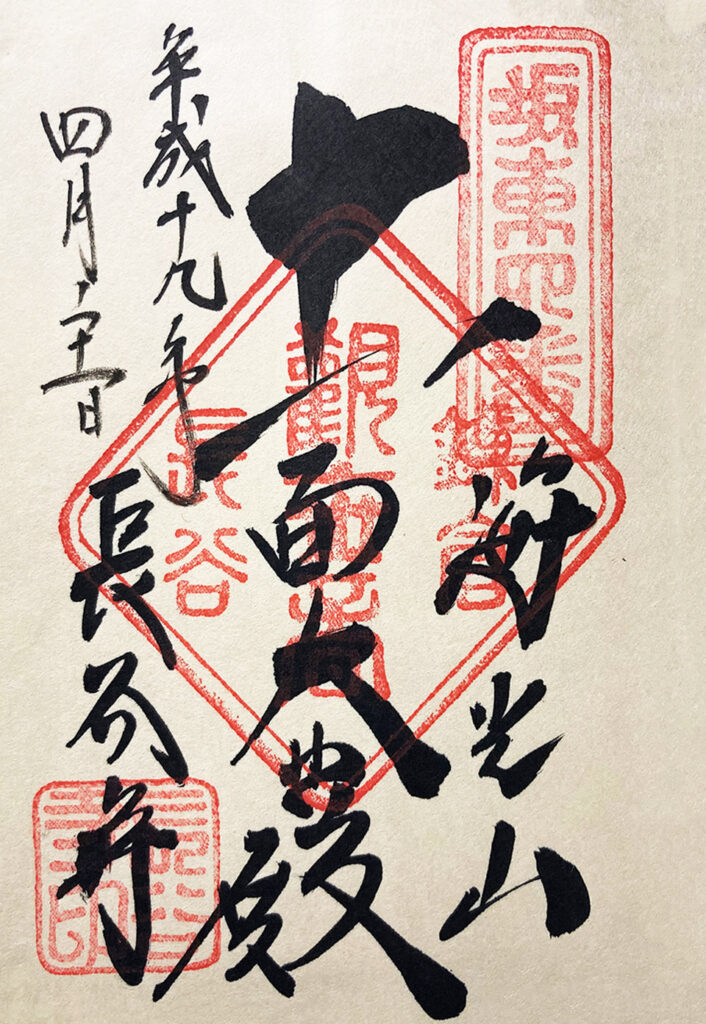 坂東四番
海光山
十一面大悲殿
鎌倉
觀世音
長谷
長谷寺
平成十九年
四月二十一日